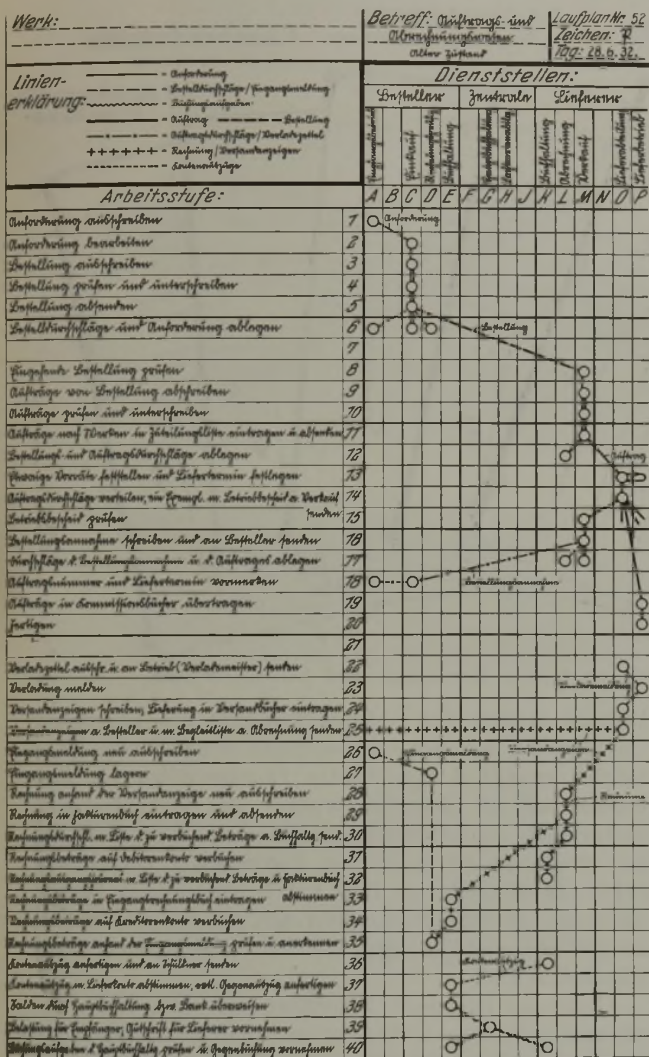 Werk:
Betreff: Auftrags- und
Abrechnungswesen
Alter Zustand
Laufplan Nr. 52
Zeichen: R
Tag: 28.6.32.
Linien-
erklärung:
= Anforderung
= Bestelldurchschläge/Eingangsmeldung
= Buchungsaufgaben
= Auftrag
= Bestellung
= Auftragsdurchschläge/Verladezettel
+++++ = Rechnung/Versandanzeigen
= Kontenauszüge
Dienststellen:
Besteller Zentrale Lieferer
Einkauf
Buchhaltung
Buchhaltung
Abrechnung
Verkauf
Arbeitsstufe: A B C D E F G H J K L M N O P
Anforderung ausschreiben 1 Anforderung
Anforderung bearbeiten 2
Bestellung ausschreiben 3
Bestellung prüfen und unterschreiben 4
Bestellung absenden 5
Bestelldurchschläge und Anforderung ablegen 6 Bestellung
7
Eingehende Bestellung prüfen 8
Aufträge von Bestellung abschreiben 9
Aufträge prüfen und unterschreiben 10
Aufträge nach Werken in Zuteilungsliste eintragen u. absenden 11
Bestellungs- und Auftragsdurchschläge ablegen 12 Auftrag
Etwaige Vorräte feststellen und Liefertermin festlegen 13
Auftragsdurchschläge verteilen, ein Exempl. m. Betriebsbescheid a. Verkauf 14
senden
Betriebsbescheid prüfen 15
Bestellungsannahme schreiben und an Besteller senden 16
Durchschläge d. Bestellungsannahme u. d. Auftrages ablegen 17
Auftragsnummer und Liefertermin vormerken 18 Bestellungsannahme
Aufträge in Kommissionsbücher übertragen 19
Fertigen 20
21
Verladezettel ausschr. u. an Betrieb (Verlademeister) senden 22
Verladung melden 23
Versandanzeigen schreiben, Lieferung in Versandbücher eintragen 24
Versandanzeigen a. Besteller u. m. Begleitliste a. Abrechnung senden 25
Eingangsmeldung neu ausschreiben 26 Eingangsmeldung Versandanzeigen
Eingangsmeldung lagern 27
Rechnung anhand der Versandanzeige neu ausschreiben 28
Rechnung in Fakturenbuch eintragen und absenden 29
Rechnungsdurchschl. m. Liste d. zu verbuchend. Beträge a. Buchhaltg. send. 30
Rechnungsbeträge auf Debitorenkonto verbuchen 31
m. Liste d. zu verbuchend. Beträge u. Fakturenbuch 32
abstimmen
Rechnungsbeträge in Eingangsrechnungsbuch eintragen 33
Rechnungsbeträge auf Kreditorenkonto verbuchen 34
Rechnungsbeträge anhand der Eingangsmeldung prüfen u. anerkennen 35
Kontenauszug anfertigen und an Schuldner senden 36 Kontenauszug
Kontenauszug m. Lieferkonto abstimmen, evtl. Gegenauszug anfertigen 37
Salden durch Hauptbuchhaltung bzw. Bank überweisen 38
Belastung für Empfänger, Gutschrift für Lieferer vornehmen 39
Buchungsaufgaben d. Hauptbuchhaltg. prüfen u. Gegenbuchung vornehmen 40